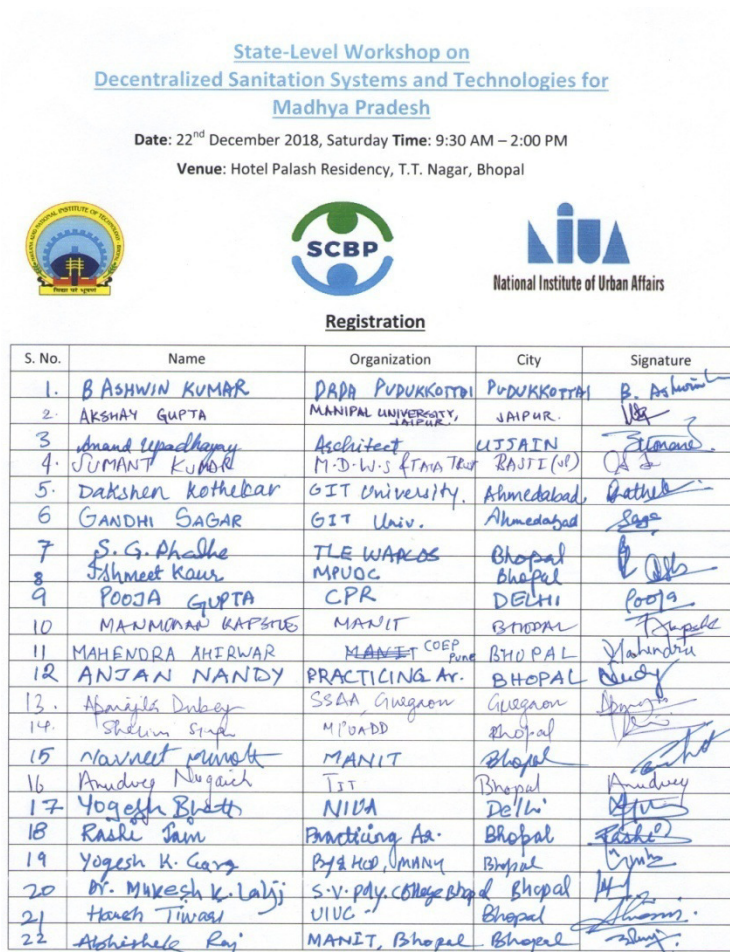 State-Level Workshop on
Decentralized Sanitation Systems and Technologies for
Madhya Pradesh
Date: 22nd December 2018, Saturday Time: 9:30 AM – 2:00 PM
Venue: Hotel Palash Residency, T.T. Nagar, Bhopal
SCBP
NIUA
National Institute of Urban Affairs
Registration
S. No. Name Organization City Signature
1. B ASHWIN KUMAR DRDA PUDUKKOTTAI PUDUKKOTTAI B. Ashwin
2. AKSHAY GUPTA MANIPAL UNIVERSITY, JAIPUR JAIPUR.
3 Anand Upadhayay Architect UJJAIN
4. SUMANT KUMAR M.D.W.S & TATA Trust
5. Dakshen Kothekar GIT University. Ahmedabad,
6 GANDHI SAGAR GIT Univ. Ahmedabad
7 S. G. Phadke Bhopal
8 Ishmeet Kaur MPUDC Bhopal
9 POOJA GUPTA CPR DELHI Pooja
10 MANMOHAN KAPSHE MANIT BHOPAL
11 MAHENDRA AHIRWAR MANIT COEP Pune BHOPAL Mahendra
12 ANJAN NANDY PRACTICING Ar. BHOPAL Nandy
13. Aparajita Dubey SSAA, Gurgaon Gurgaon
14. Bhopal
15 Navneet MANIT Bhopal
16 Anudveg Nugaich TIT Bhopal Anudveg
17 Yogesh Bhatt NIUA Delhi
18 Rashi Jain Practicing Ar. Bhopal Rashi
19 Yogesh K. Garg Bhopal
20 Dr. Mukesh K. S.V. poly. College Bhopal Bhopal
21 Harsh Tiwari UIUC Bhopal
22 Abhishek Raj MANIT, Bhopal Bhopal